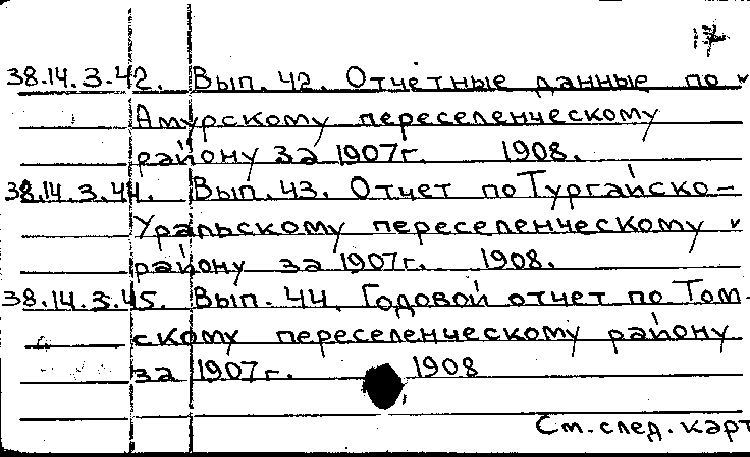 17
38.14.3.42. Вып. 42. Отчетные данные по
Амурскому переселенческому
району за 1907г. 1908.
38.14.3.44. Вып. 43. Отчет по Тургайско-
Уральскому переселенческому
району за 1907г. 1908.
38.14.3.45. Вып. 44. Годовой отчет по Том-
скому переселенческому району
за 1907г. 1908
См. след. карт